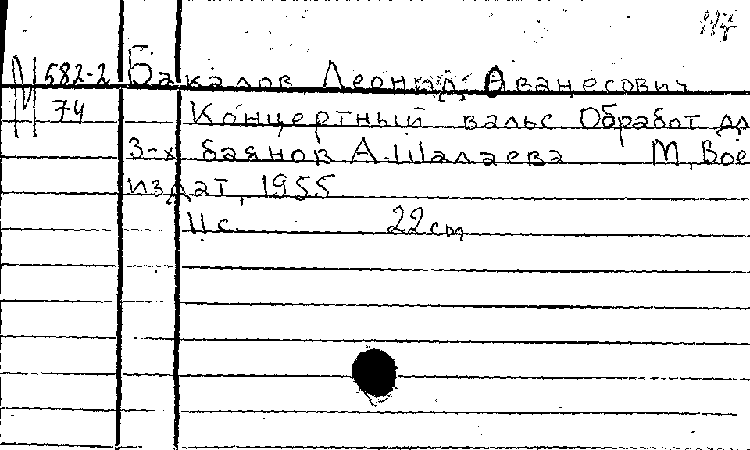 М 582-2 Бакалов Леонид Ованесович
74 Концертный вальс Обработ дл
3-х баянов А. Шалаева М, Вое
издат, 1955
11 с. 22 cm